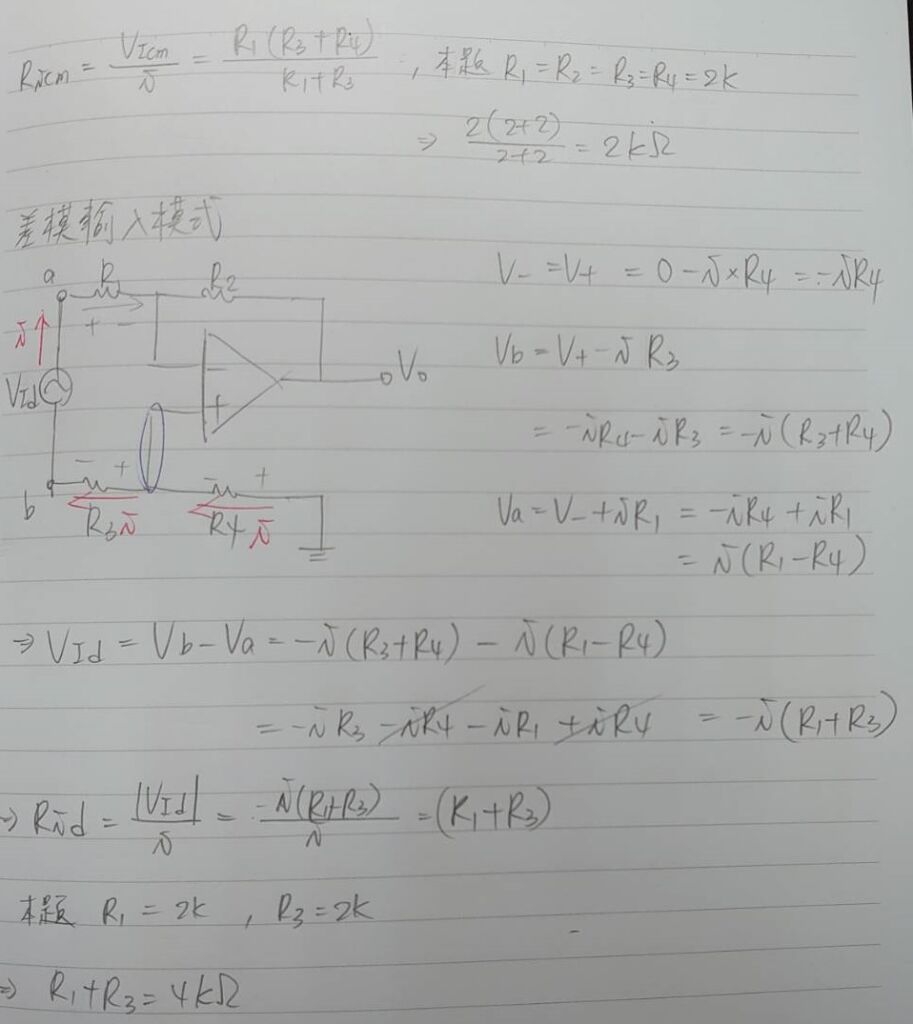 Ricm = VIcm / i = R1(R3+R4) / R1+R3 , 本題 R1=R2=R3=R4=2k
⇒ 2(2+2) / 2+2 = 2kΩ
差模輸入模式
a R R2
i + -
VId - + Vo
- + +
b R3 i R4 i
V- = V+ = 0 - i×R4 = -iR4
Vb = V+ - i R3
= -iR4 - iR3 = -i(R3+R4)
Va = V- + iR1 = -iR4 + iR1
= i(R1-R4)
⇒ VId = Vb - Va = -i(R3+R4) - i(R1-R4)
= -iR3 - iR4 - iR1 + iR4 = -i(R1+R3)
⇒ Rid = |VId| / i = -i(R1+R3) / i = (R1+R3)
本題 R1 = 2k , R3 = 2k
⇒ R1+R3 = 4kΩ